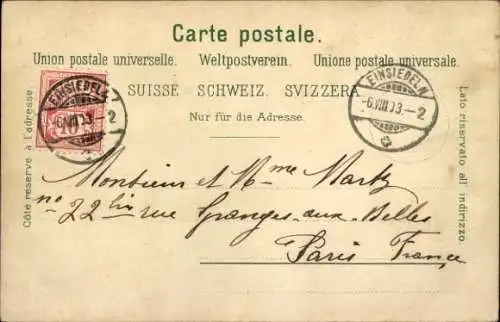 Carte postale.
Union postale universelle. Weltpostverein. Unione postale universale.
SUISSE SCHWEIZ. SVIZZERA
Nur für die Adresse.
Côté réservé à l'adresse.
Lato riservato all' indirizzo.
EINSIEDELN
EINSIEDELN
-2
10
2
Monsieur et Mme Marty
no 22 bis rue Granges-aux-Belles
Paris France